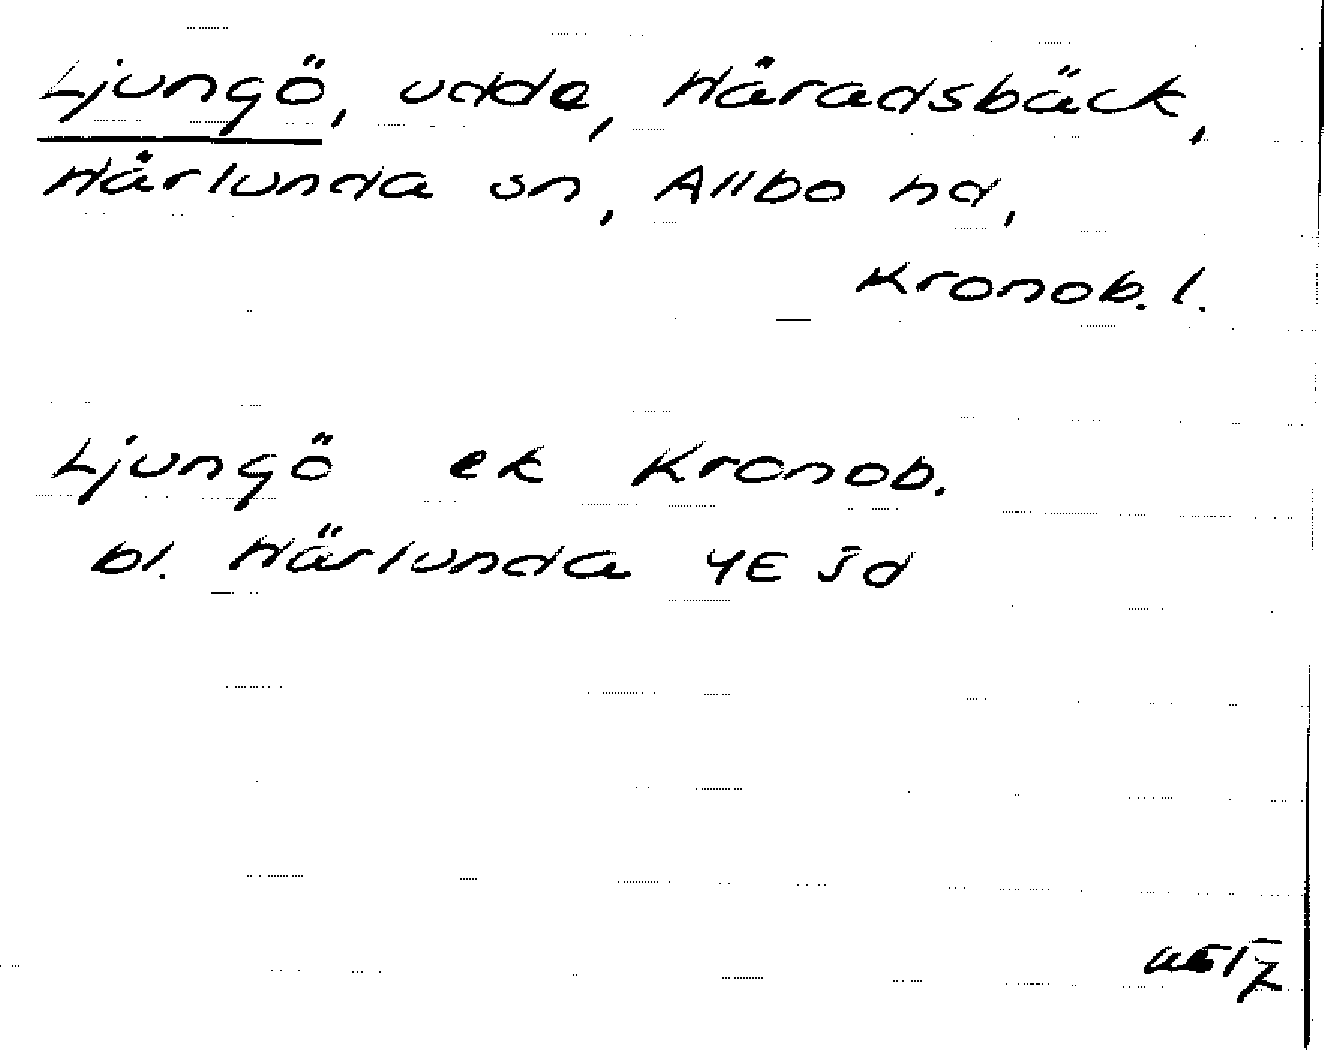 Ljungö, udde, Häradsbäck,
Härlunda sn, Allbo hd,
Kronob. l.
Ljungö ek Kronob.
bl. Härlunda 4E Sd